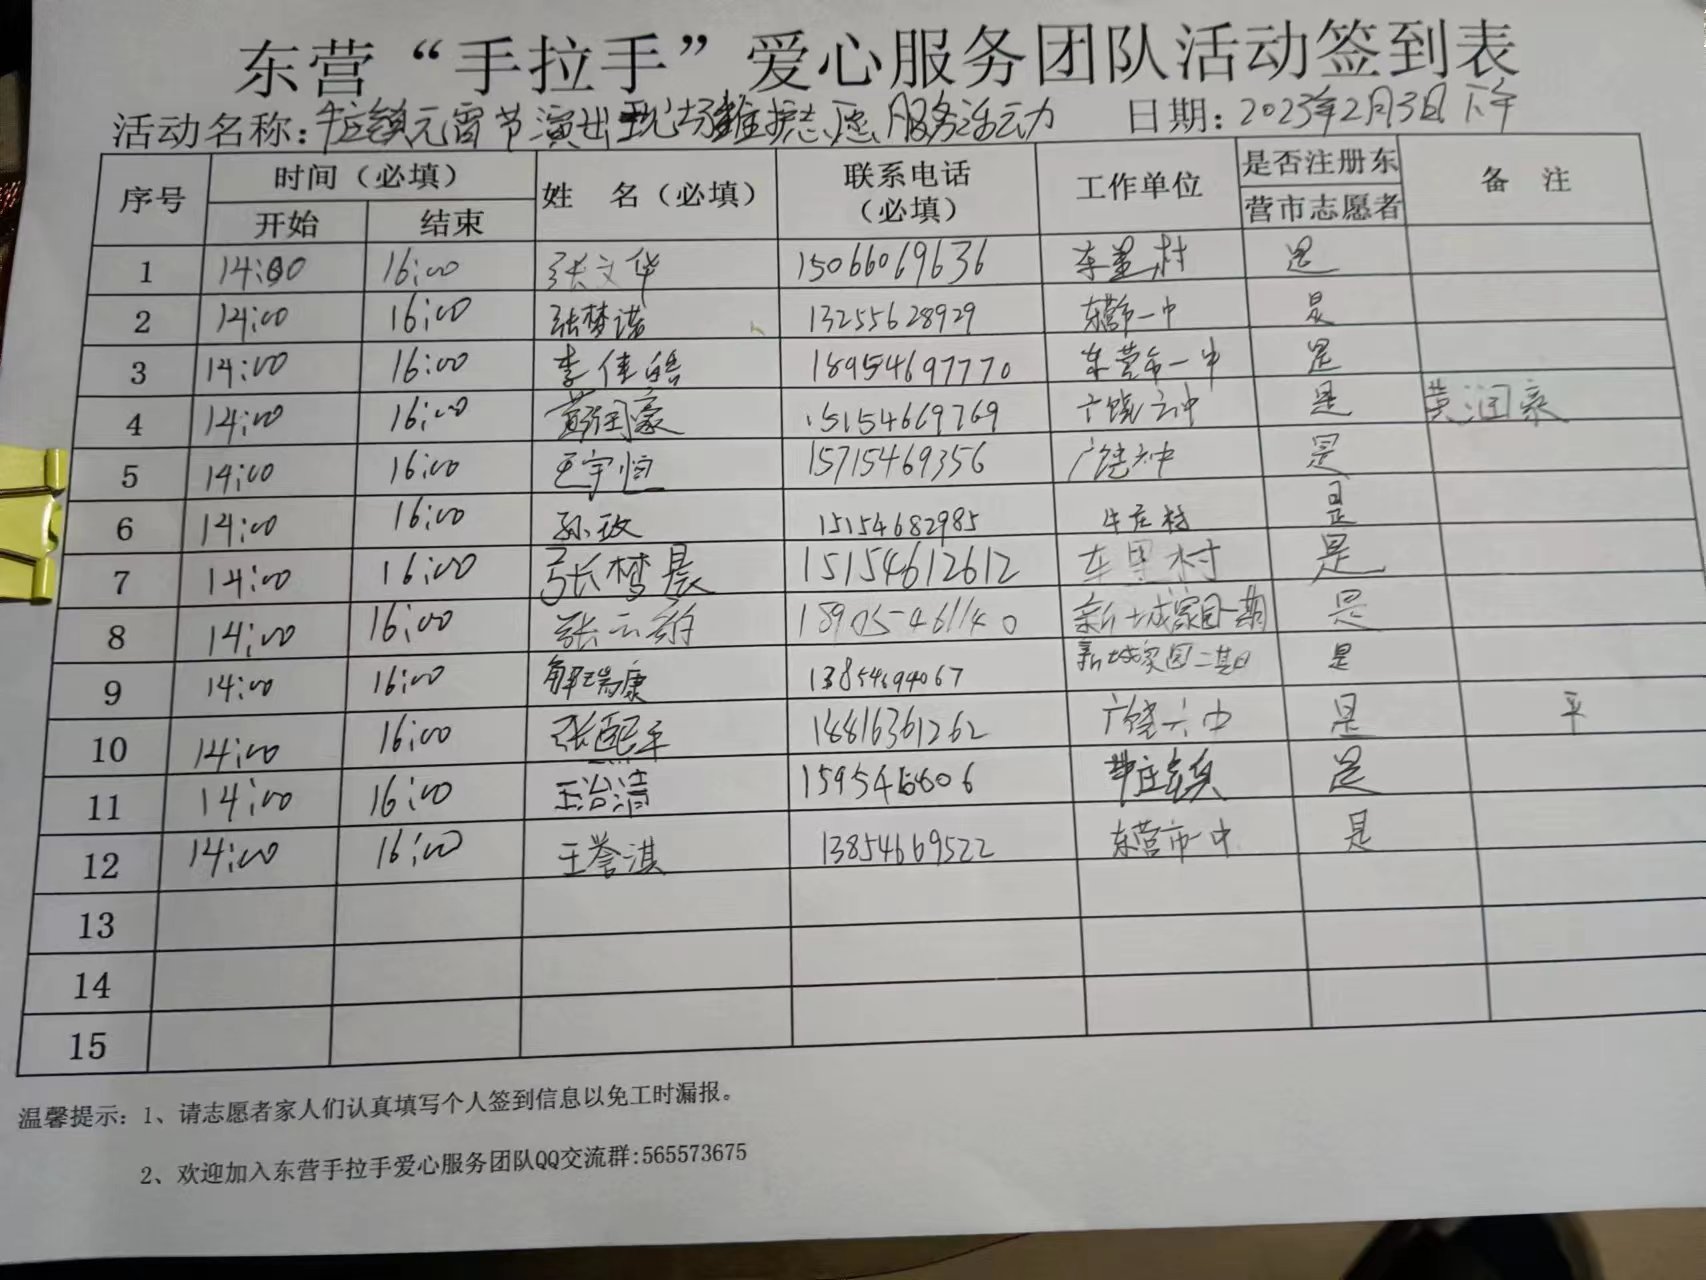 东营“手拉手”爱心服务团队活动签到表
活动名称：牛庄镇元宵节演出现场维护志愿服务活动 日期：2023年2月3日下午
序号 时间（必填） 姓 名（必填） 联系电话（必填） 工作单位 是否注册东营市志愿者 备 注
开始 结束
1 14:00 16:00 张文华 15066069636 是
2 14:00 16:00 张梦诺 13255628929 东营市一中 是
3 14:00 16:00 李佳皓 18954697770 东营市一中 是
4 14:00 16:00 黄润豪 15154669769 广饶六中 是 黄润豪
5 14:00 16:00 王宇恒 15715469356 广饶六中 是
6 14:00 16:00 孙玫 15154682985 牛庄村 是
7 14:00 16:00 张梦晨 15154612612 是
8 14:00 16:00 张云 18905461140 新城家园一期 是
9 14:00 16:00 解瑞康 13854694067 新城家园二期 是
10 14:00 16:00 张熙平 18816361262 广饶六中 是 平
11 14:00 16:00 王治清 牛庄镇 是
12 14:00 16:00 王誉淇 13854669522 东营市一中 是
13
14
15
温馨提示：1、请志愿者家人们认真填写个人签到信息以免工时漏报。
2、欢迎加入东营手拉手爱心服务团队QQ交流群:565573675